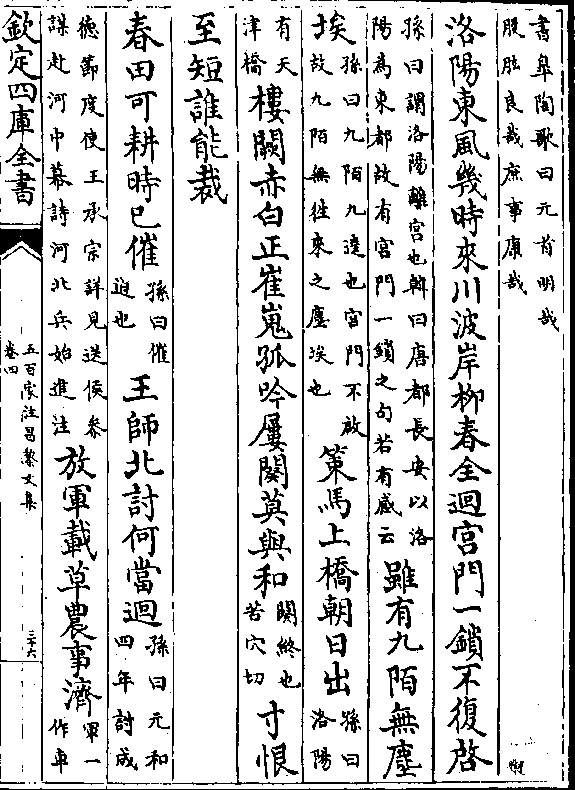 書皐陶歌曰元首明哉
股肱良哉庶事康哉
洛陽東風幾時來川波岸柳春全迴宮門一鎖不復啓
孫曰謂洛陽離宮也韓曰唐都長安以洛
陽爲東都故有宮門一鎖之句若有感云
雖有九陌無塵
埃
孫曰九陌九逵也宮門不啟
故九陌無徃來之塵埃也
策馬上橋朝日出
孫曰洛陽
有天津橋
樓闕赤白正崔嵬孤吟屢闋莫與和
闋終也
苦穴切
寸恨
至短誰能裁
春田可耕時已催
孫曰催
迫也
王師北討何當迴
孫曰元和
四年討成
德節度使王承宗詳見送侯參
謀赴河中幕詩河北兵始進注
放軍載草農事濟
軍一
作車
欽定四庫全書
五百家注昌黎文集
卷四
三十六